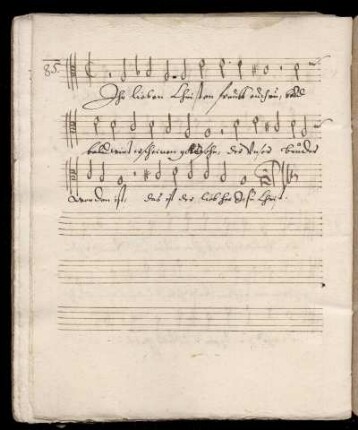 85.
Ihr lieben Christen freut euch nu, bald
bald wirt erscheinen gottes Sohn, der unser bruder
worden ist, das ist der lieb her Jesu Christ.